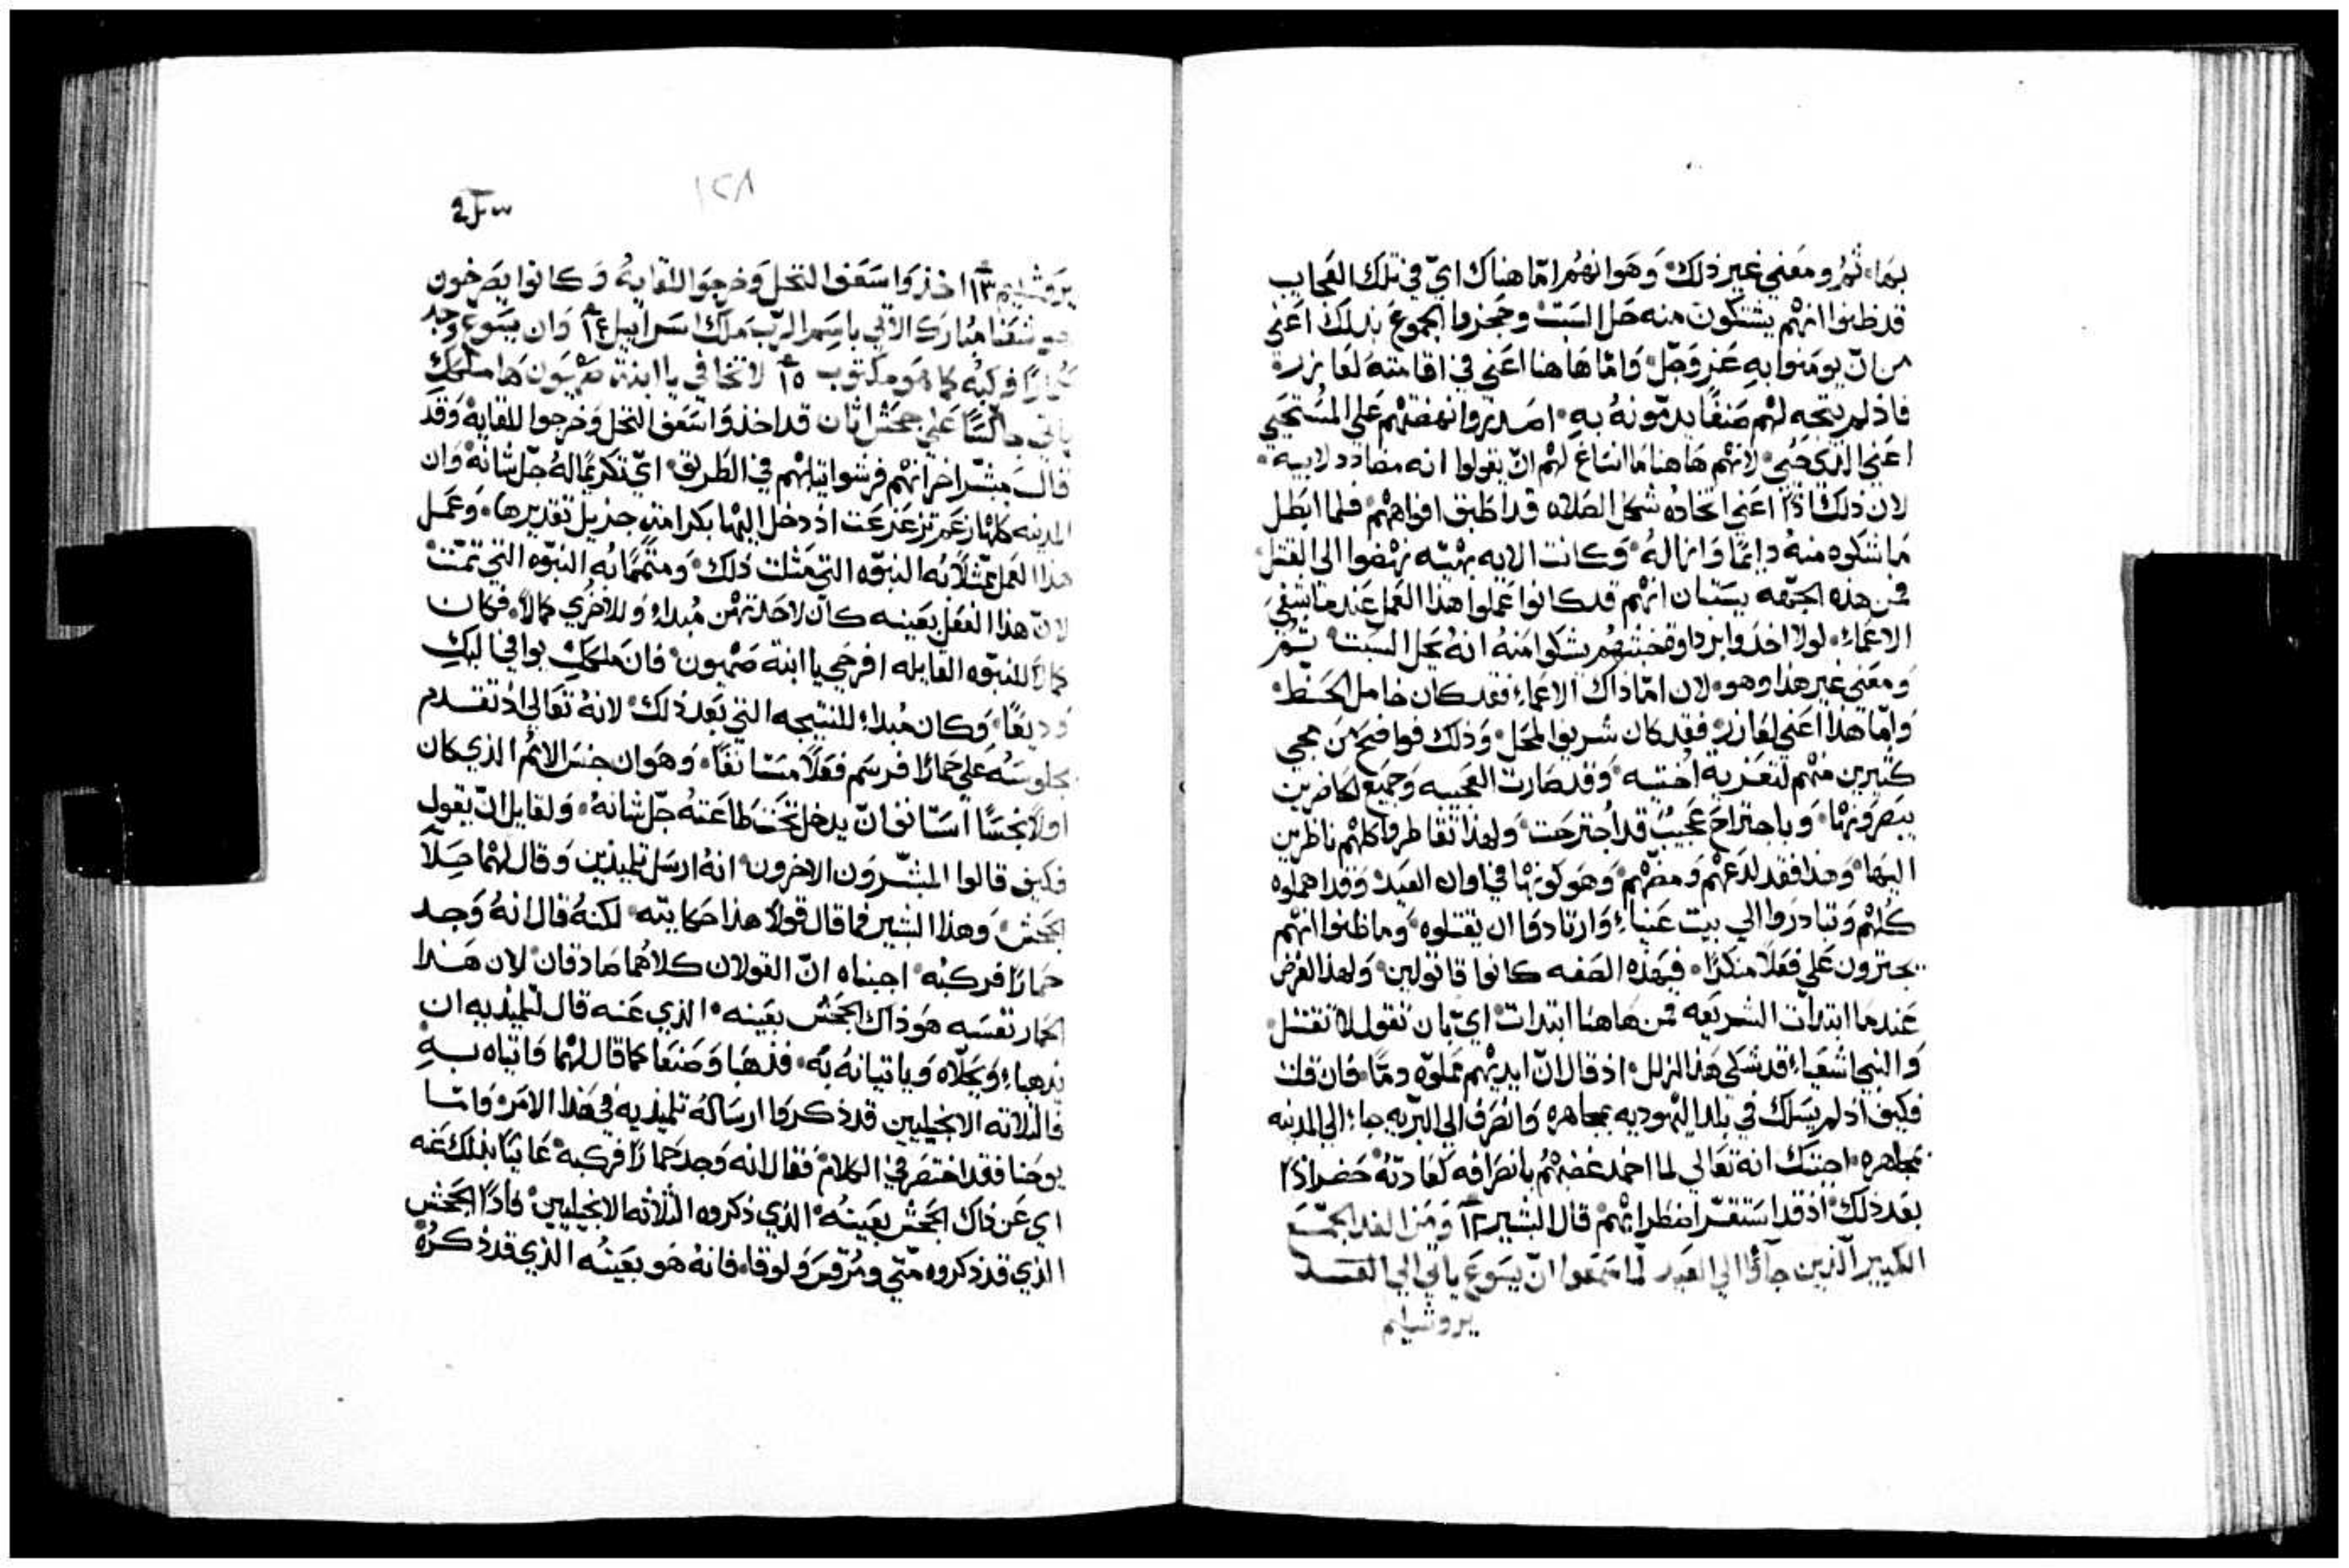 بهاء ثم ومعني غير ذلك وهوانهم امّا هناك ايّ في تلك العجايب
قد ظنوا انهم يشتكون منه حل السبت وحجزوا الجموع بذلك اعني
من انّ يومنوا به عز وجلّ وامّا هاهنا اعني في اقامته لعازر
فاذ لم يتجه لهم صنفًا يذمّونه به اصدروا نهضتهم علي المستحيي
اعني الذي حيي لانهم هاهنا ما انساغ لهم انّ يقولوا انه مضادد لابيه
لان ذلك اذًا اعني اتخاده شكل الصلاه قد اطبق افواههم فلما ابطل
ما شكوه منه دايمًا وازاله وكانت الايه بهيّه نهضوا الي القتل
فمن هذه الجهّه يستبان انهم قد كانوا عملوا هذا العمل عندما شفي
الاعماء لولا اخذوا حجتهم بشكوا منه انه يحل السبت ثم
ومعني غير هذا وهو لان امّا ذاك الاعماء فقد كان خامل الحظ
وامّا هذا اعني لعازر فقد كان شريف المحل وذلك فواضح من مجي
كثيرين منهم لتعزية اختيه وقد صارت العجيبه وجميع الحاضرين
يبصرونها وباجتراح عجيب قد اجترحت ولهذا تقاطروا كلهم ناظرين
اليها وهذا فقد لدغهم ومضّهم وهو كونها في اوان العيد وقد اهملوه
كلهم وتبادروا الي بيت عنياء وارتادوا ان يقتلوه وما ظنوا انهم
يجترون علي فعلاً منكرًا فبهذه الصفه كانوا قاتولين ولهذا الغرض
عندما ابتدات الشريعه فمن هاهنا ابتدات ايّ بان تقول لا تقتل
والنبي اشعياء قد شكي هذا الزلل اذ قال انّ ايديهم مملوّه دمًا فان قلت
فكيف اذ لم يسلك في بلد اليهوديه بمجاهره وانصرف الي البريه جاء الي المدينه
بمجاهره اجبتك انه تعالي لما اخمد غضبهم بانصرافه كعادته حضر اذًا
بعد ذلك اذ قد استقرّ اضطرابهم قال البشير ١٢ ومن الغد الجمع
الكبير الذين جآوا الي العيد لما سمعوا انّ يسوع ياتي الي
يروشليم
١٢٨
يروشليم ١٣ اخذوا سعف النخل وخرجوا للقايه وكانوا يصرخون
هوشعنا مبارك الاتي باسم الرب ملك اسراييل ١٤ وان يسوع وجد
حمارًا فركبه كما هو مكتوب ١٥ لا تخافي يا ابنة صهيون ها ملكك
ياتي جالسًا علي جحش اتان قد اخذوا سعف النخل وخرجوا للقايه وقد
قال مبشّر اخر انهم فرشوا ثيابهم في الطريق ايّ تكريمًا له جلّ شانه وان
المدينه كلها زعم تزعزعت اذ دخل اليها بكرامة جزيل تقديرها وعمل
هذا العمل ممثلاً به النبوّه التي مثلت ذلك ومتممًا به النبوّه التي تمّت
لانّ هذا الفعل بعينه كان لاحدتهن مبداء وللاخري كمالاً فكان
كمالاً للنبوّه القايله افرحي يا ابنة صهيون فان ملكك يوافي اليك
وديعًا وكان مبداء للنتيجه التي بعد ذلك لانه تعالي اذ تقدم
بجلوسه علي حمارًا فرسم فعلاً مستانفًا وهو ان جنس الامم الذي كان
اولاً نجسًا استانف انّ يدخل تحت طاعته جلّ شانه ولقايل انّ يقول
فكيف قالوا المبشّرون الاخرون انه ارسل تلميذين وقال لهما حلاّ
الجحش وهذا البشير فما قال قولاً هذا حكايته لكنه قال انه وجد
حمارًا فركبه اجبناه انّ القولان كلاهما صادقان لان هذا
الحمار نفسه هو ذاك الجحش بعينه الذي عنه قال لتلميذيه ان
يذهباء ويحلاّه وياتيانه به فذهبا وصنعا كما قال لهما واتياه به
فالثلاثه الانجيليين قد ذكروا ارساله تلميذيه في هذا الامر وامّا
يوحنا فقد اختصر في الكلام فقال انه وجد حمارًا فركبه عانيًا بذلك عنه
اي عن ذاك الجحش بعينه الذي ذكروه الثلاثه الانجيليين فاذًا الجحش
الذي قد ذكروه متّي ومرقس ولوقا فانه هو بعينه الذي قد ذكره